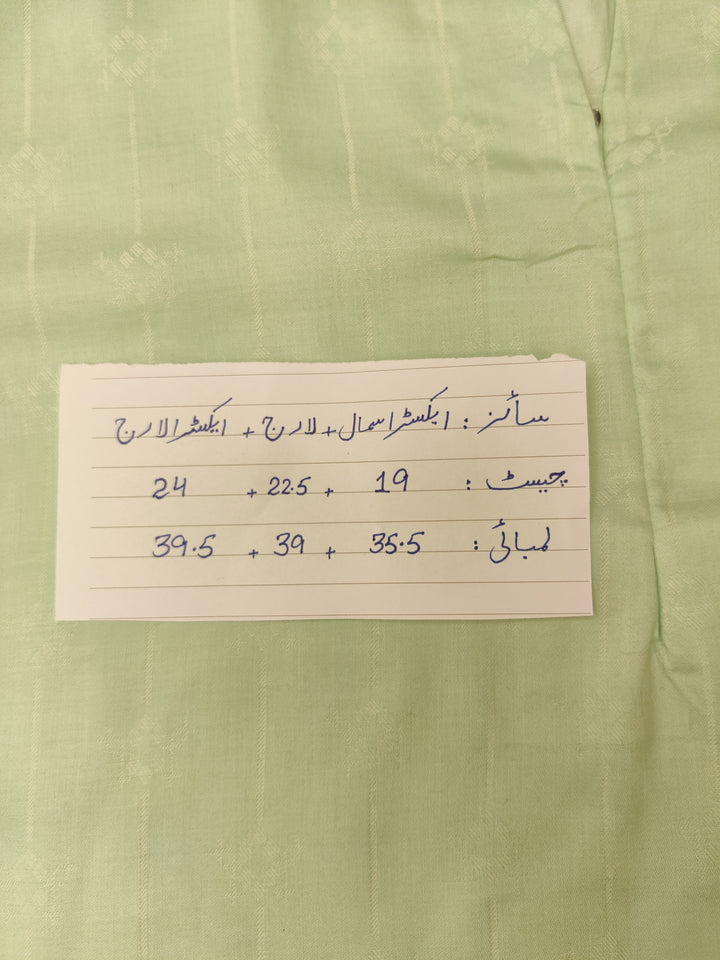 سائز : ایکسٹرا سمال + لارج + ایکسٹرا لارج
چیسٹ : 19 + 22.5 + 24
لمبائی : 35.5 + 39 + 39.5